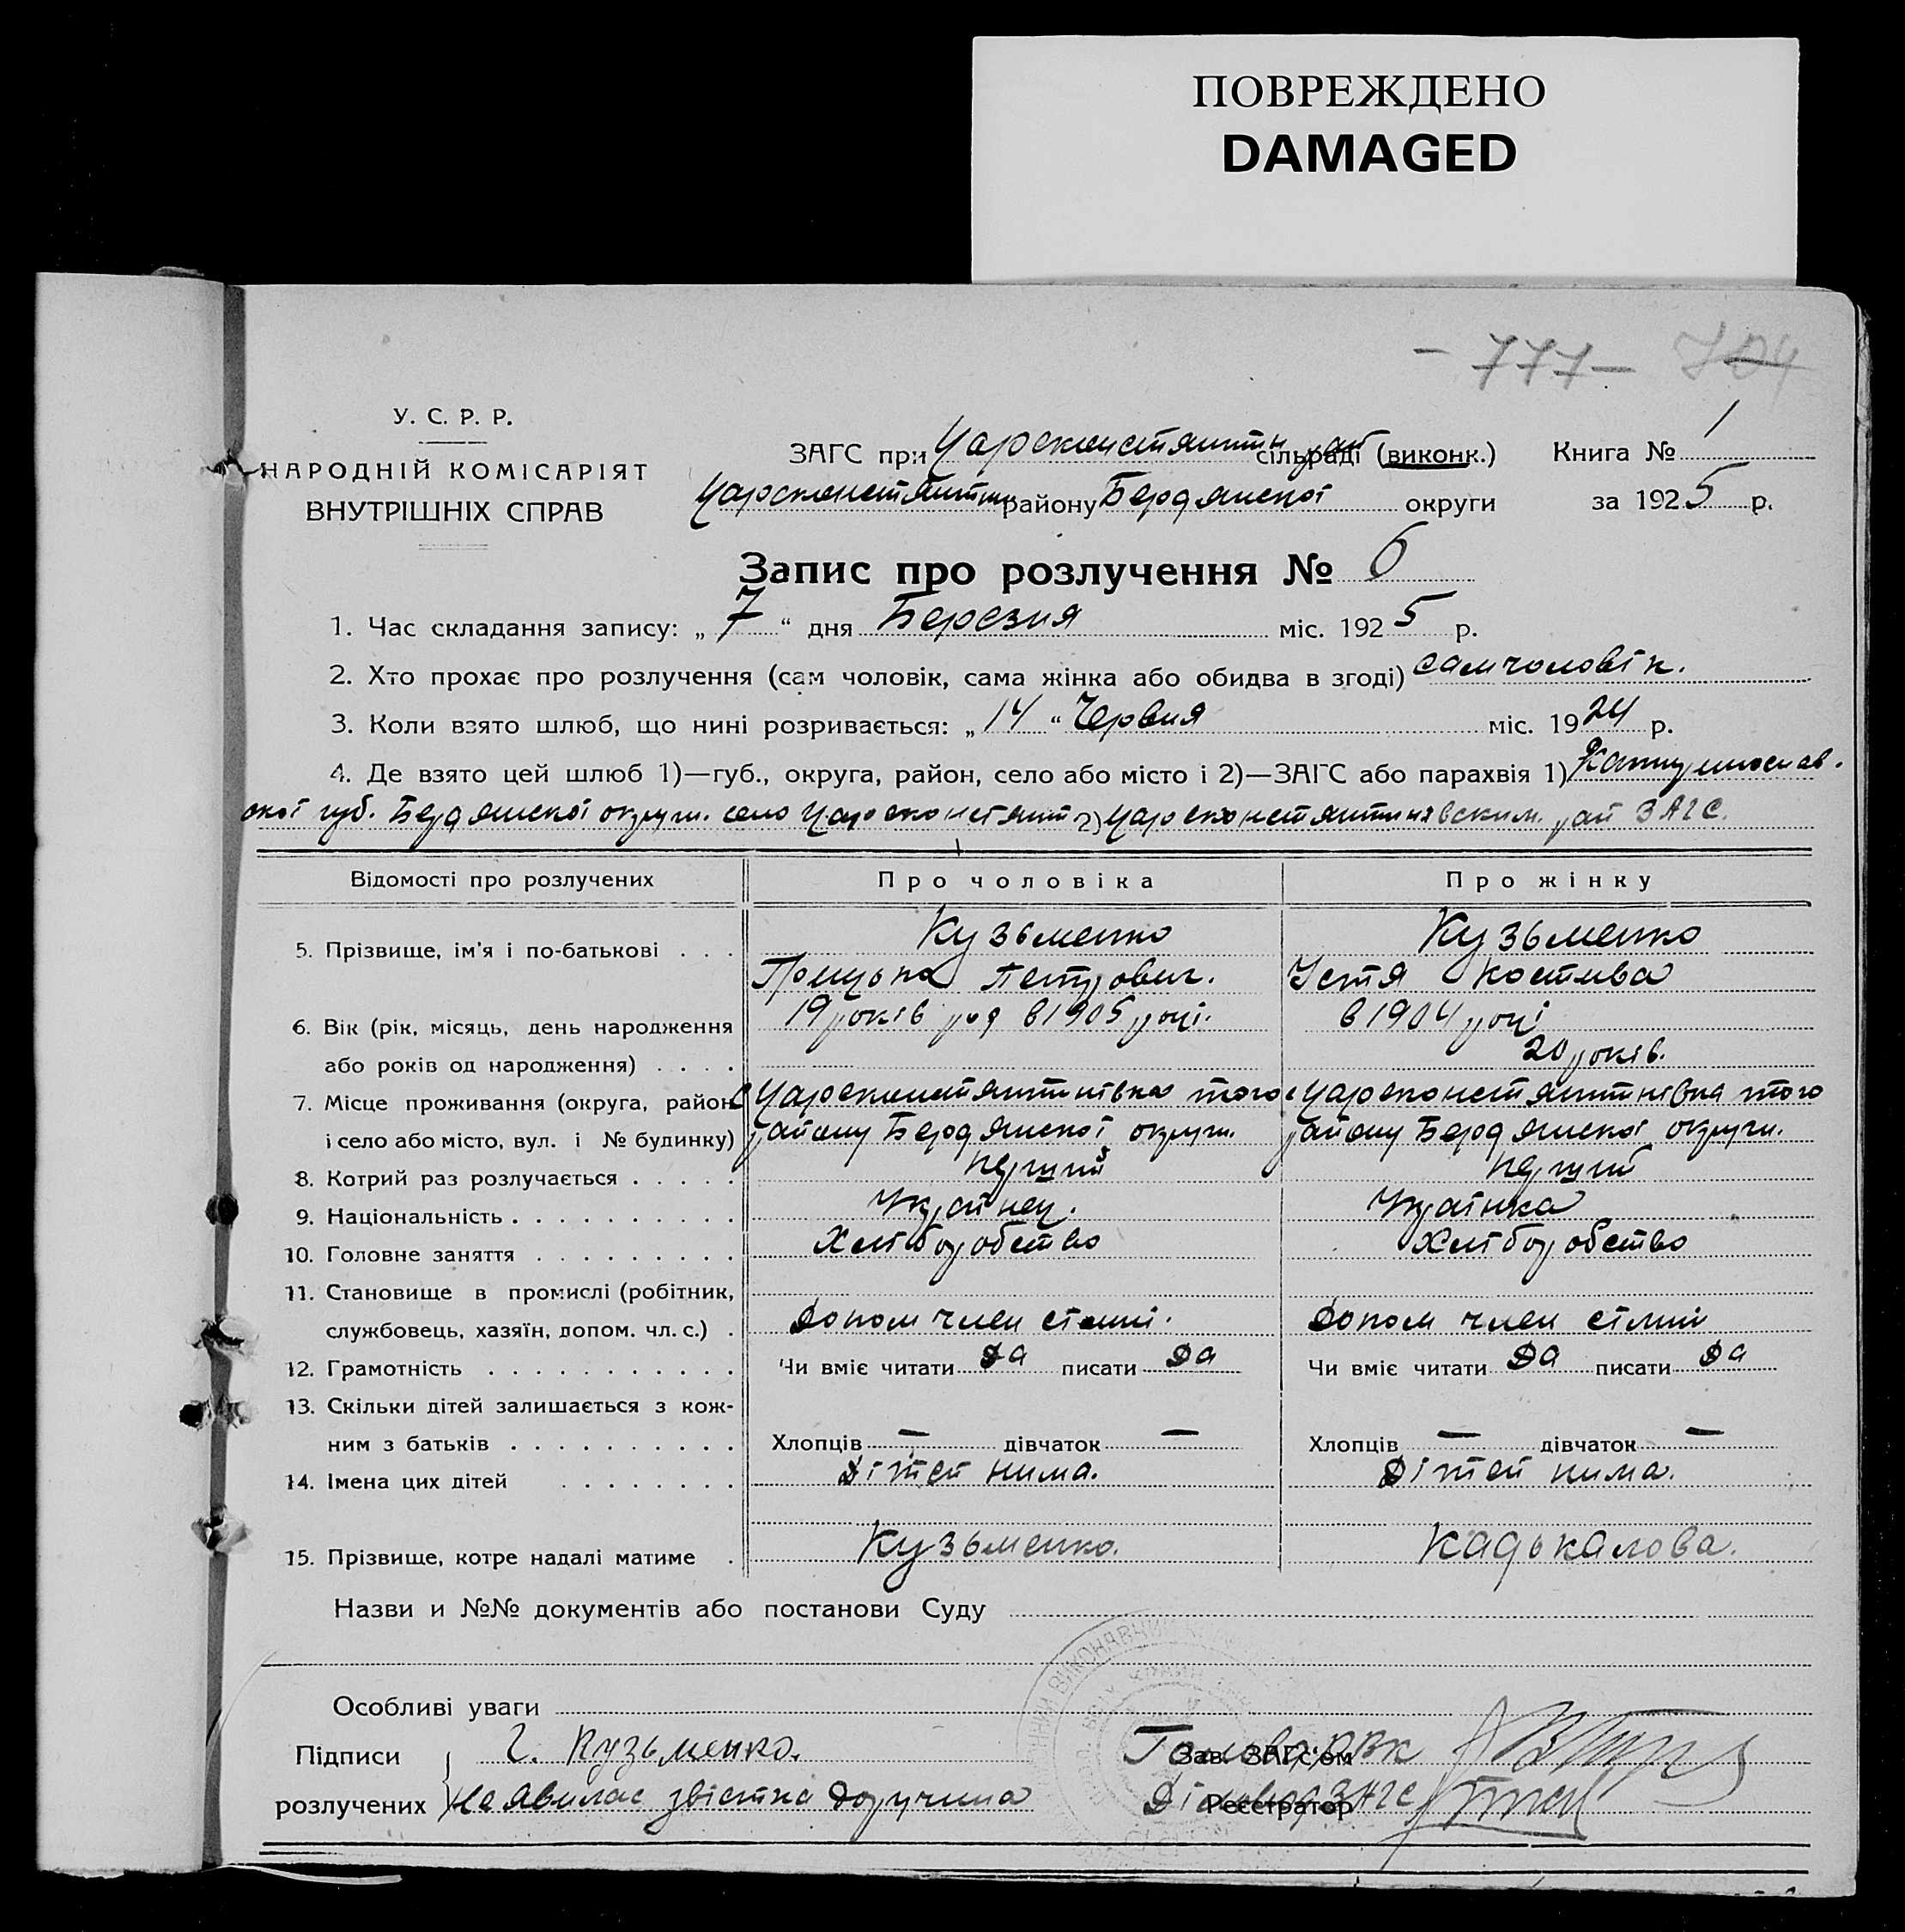 ПОВРЕЖДЕНО
DAMAGED
– 777 – 704
У. С. Р. Р.
НАРОДНІЙ КОМІСАРІЯТ
ВНУТРІШНІХ СПРАВ
ЗАГС при Царсконстянтин рай сільраді (виконк.) Книга № 1
Царсконстянтин району Бердянскої округи за 1925 р.
Запис про розлучення № 6
1. Час складання запису: „ 7 “ дня Березня міс. 1925 р.
2. Хто прохає про розлучення (сам чоловік, сама жінка або обидва в згоді) сам чоловік.
3. Коли взято шлюб, що нині розривається: „ 14 “ Червня міс. 1924 р.
4. Де взято цей шлюб 1)—губ., округа, район, село або місто і 2)—ЗАГС або парахвія 1)
скої губ. Бердянскої округи. село Царсконстянт 2) Царсконстянтинивским рай ЗАГС.
Відомості про розлучених Про чоловіка Про жінку
5. Прізвище, ім'я і по-батькові . . . Кузьменко Кузьменко
Грицько Петрович. Устя Костива
6. Вік (рік, місяць, день народження 19 років род в 1905 році. в 1904 році
або років од народження) . . . . 20 років.
7. Місце проживання (округа, район с Царсконстянтинівка того с Царсконстянтинівка того
і село або місто, вул. і № будинку) району Бердянскої округи. району Бердянскої округи.
8. Котрий раз розлучається . . . . . перший перший
9. Національність . . . . . . . . . . Украінец. Украінка
10. Головне заняття . . . . . . . . . Хлітборобство Хлітборобство
11. Становище в промислі (робітник,
службовець, хазяїн, допом. чл. с.) . Допом член сіммі. Допом член сімми
12. Грамотність . . . . . . . . . . . Чи вміє читати да писати да Чи вміє читати да писати да
13. Скільки дітей залишається з кож-
ним з батьків . . . . . . . . . . Хлопців — дівчаток — Хлопців — дівчаток —
14. Імена цих дітей . . . . . . . . Дітей нима. Дітей нима.
15. Прізвище, котре надалі матиме . Кузьменко. Кадькалова.
Назви и №№ документів або постанови Суду
Особливі уваги
Підписи Г. Кузьменко. Зав. ЗАГС'ом Голова РВК
розлучених Не явилас звістка доручина Реєстратор Діловод ЗАГС